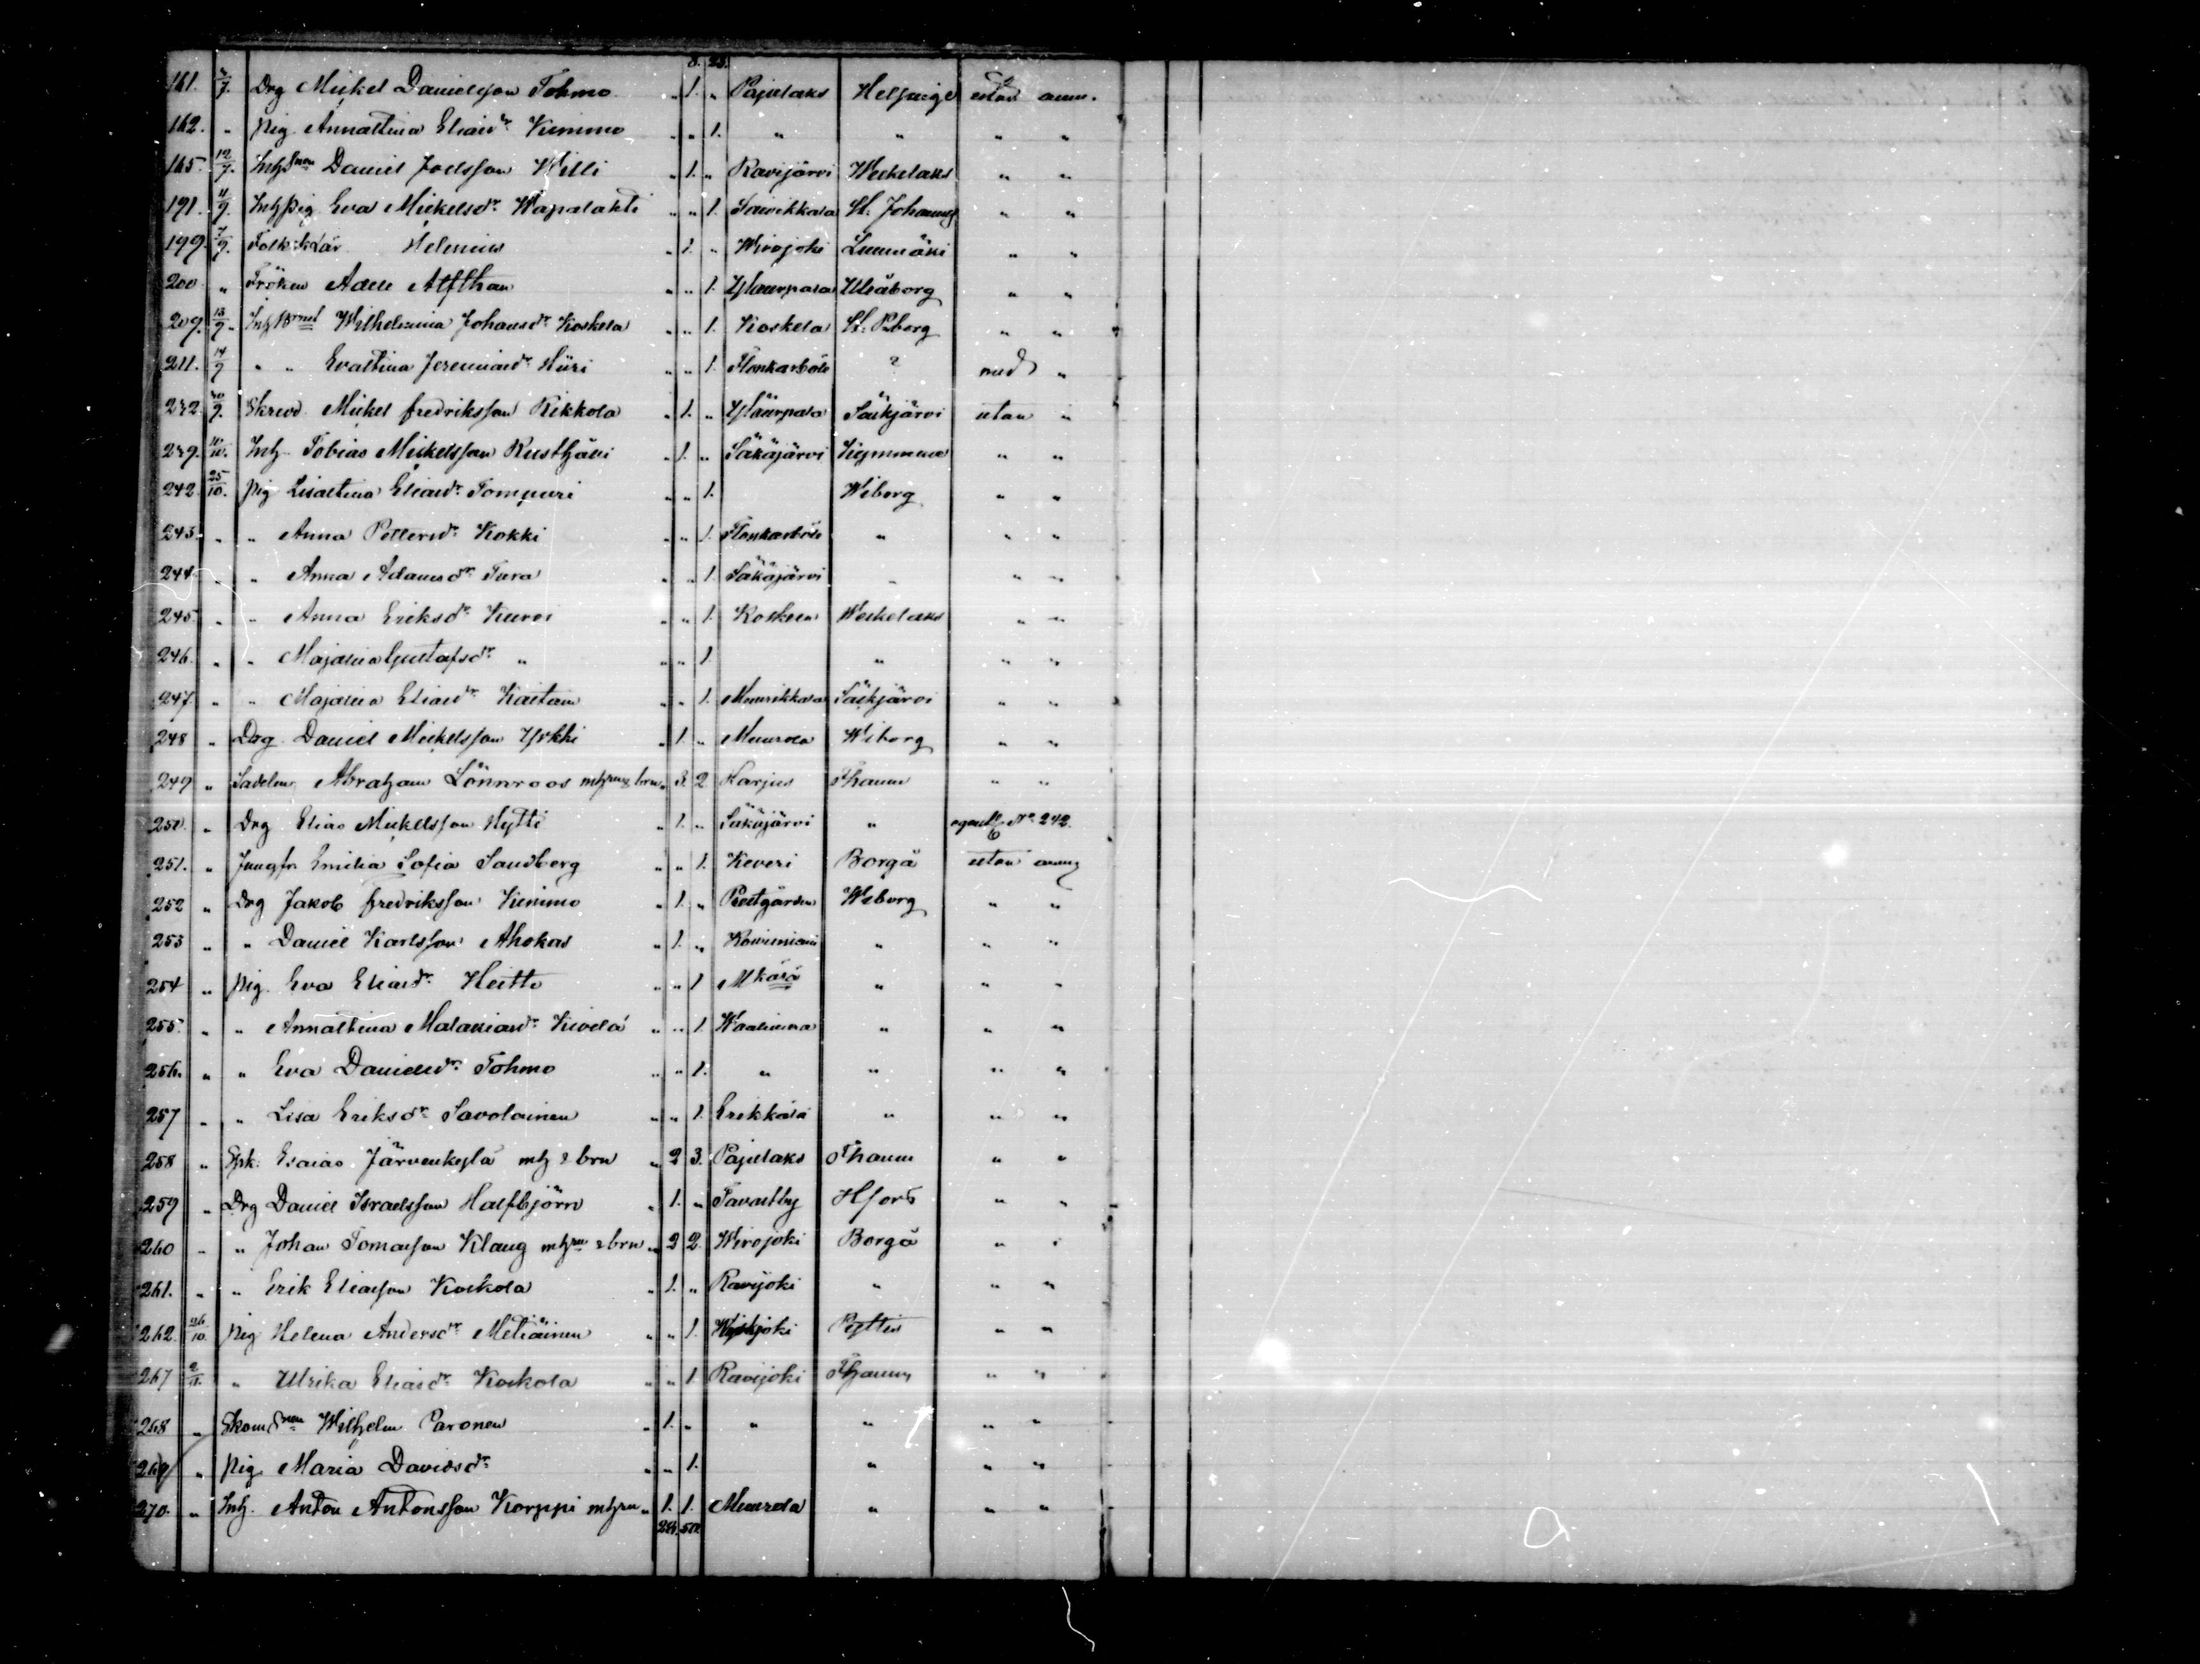 8. 23.
161. 7/7. Drg Mickel Danielsson Tohmo " 1. " Pajulaks Helsinge utan anm.
162. " pig. Annastina Eliasdr Kimmo " " 1. " " " "
165. 12/9. Inh Son Daniel Joelsson Willi " 1. " Ravijärvi Weckelaks " "
191. 4/9. Inh pig Eva Mickelsdr Wapalahti " " 1. Saivikkala St. Johannes " "
199. 7/9. Folk.sk.lär Helenius " 1. " Wirojoki Luumäki " "
200 " Fröken Adele Alfthan " " 1. Yläurpala Uleåborg " "
209. 13/9. Inh Wilhelmina Johansdr Koskela " " 1. Koskela St. Pborg " "
211. 14/9 " " Evastina Jeremiasdr Hiiri " " 1. Flonkarböle ? med "
232. 30/9. Skrivd. Mickel Fredriksson Kikkola " 1. " Yläurpala Säkjärvi utan "
239. 10/10. Inh. Tobias Mickelsson Rusthjäli " 1. " Säkäjärvi Kymmene " "
242. 25/10. pig Lisastina Eliasdr Tompuri " " 1. Wiborg " "
243. " " Anna Pettersdr Kokki " " 1. Flonkarböle " " "
244. " " Anna Adamsdr Tura " " 1. Säkäjärvi " " "
245. " " Anna Eriksdr Kurvi " " 1. Koskela Weckelaks " "
246. " " Majalisa Gustafsdr " " " 1. " " "
247. " " Majalisa Eliasdr Kaitain " " 1. Muurikkala Säckjärvi " "
248 " Drg Daniel Mickelsson Yrkki " 1. " Muurola Wiborg " "
249 " Sadelm. Abraham Lönnroos mhru & brn " 3. 2 Harjus Fhamn " "
250. " Drg Elias Mickelsson Hytti " 1. " Säkäjärvi " No 242.
251. " Jungfr Emilia Sofia Sandberg " " 1. Keveri Borgå utan anm
252 " Drg Jakob Fredriksson Kimmo " 1. " Prestgården Wiborg " "
253 " " Daniel Karlsson Ahokas " 1. " " " "
254 " pig. Eva Eliasdr Heitto " " 1 " " "
255. " " Annastina Malakiasdr Kivelä " " 1. Waalimaa " " "
256. " " Eva Danielsdr Tohmo " " 1. " " " "
257 " " Lisa Eriksdr Savolainen " " 1. Erikkälä " " "
258 " Spk. Esaias Järvenkylä mh & brn " 2 3. Pajulaks Fhamn " "
259 " Drg Daniel Israelsson Halfbjörn " 1. " Tavastby Hfors " "
260 " " Johan Tomasson Klaug mhru & brn " 2 2. Wirojoki Borgå " "
261. " " Erik Eliasson Koskola " 1. " Ravijoki " " "
262. 26/10. pig Helena Andersdr Metiäinen " " 1. Pyttis " "
267 2/11. " Ulrika Eliasdr Koskola " " 1. Ravijoki Fhamn " "
268 " Skom Son Wilhelm Paronen " 1. " " " " "
269 " pig. Maria Davidsdr " " 1. " " "
270. " Inh. Anton Antonsson Korppi mhru " 1. 1. Muurola " " "